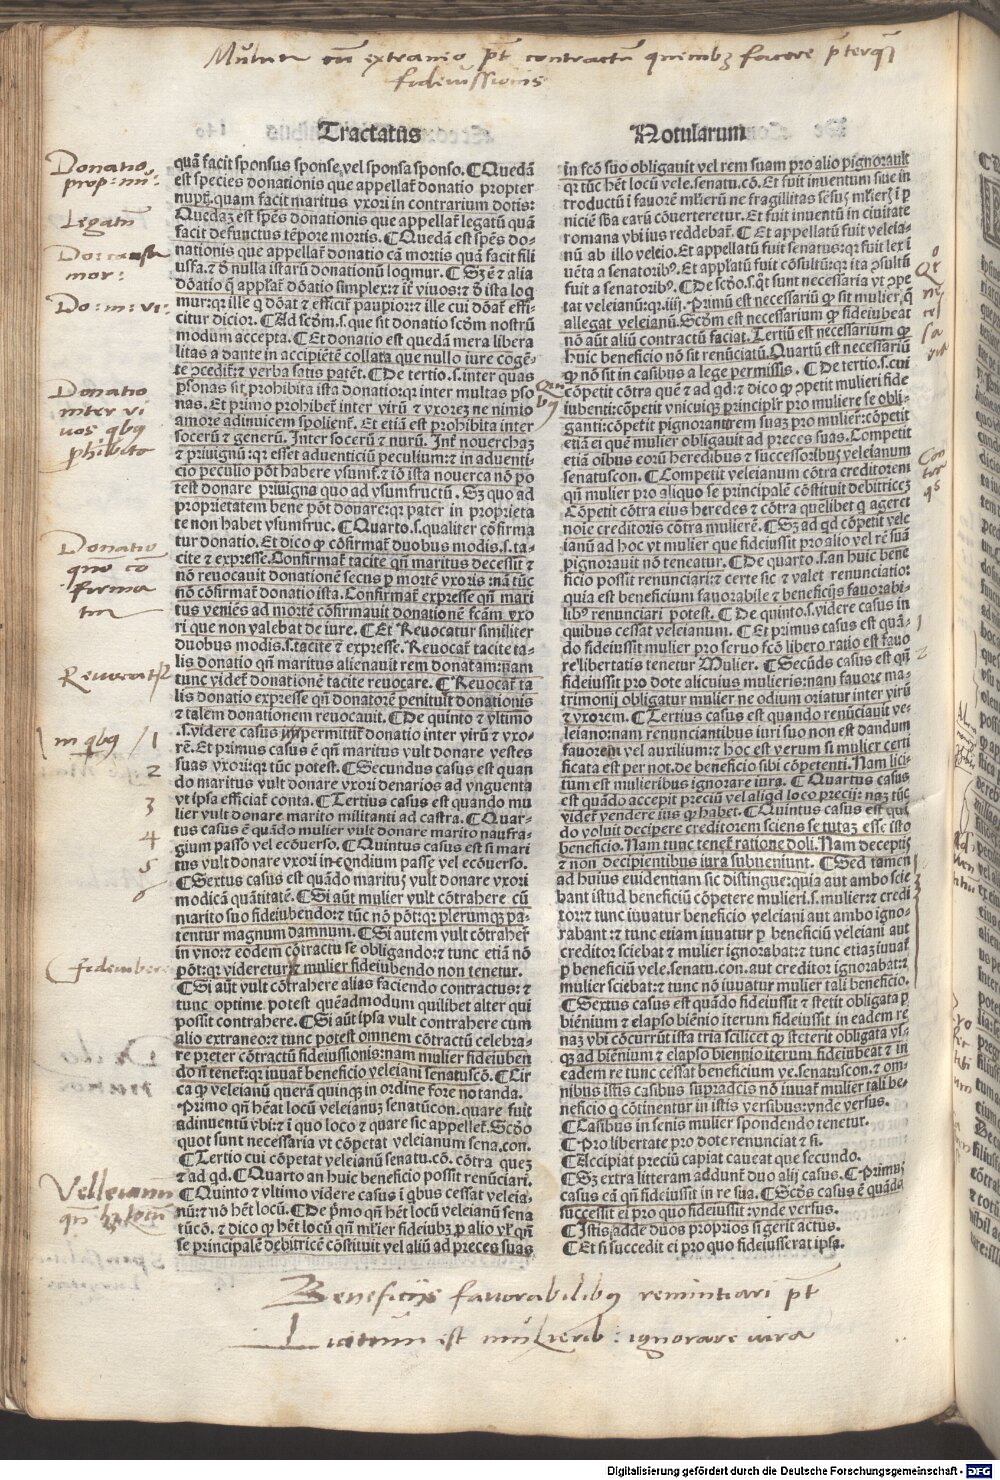 Mulier cū extraneo pōt contractū quemlibꝫ facere p̄terqȝ
fideiussionis
Tractatus
Notularum
Donatio
prop: nu:
Legatū
Do: causa
mor:
Do: in: vi:
Donatio
inter vi
uos qbꝰ
phibeto
Donatio
quo co
firma
tur
Reuocatꝭ
in qbꝰ / 1
2
3
4
5
6
fideiubere
Velleianū
qn̄ hꝫ locū
quā facit sponsus sponse, vel sponsa sponso. ¶ Quedā
est species donationis que appellat̄ donatio propter
nupt. quam facit maritus vxori in contrarium dotis:
Quedaȝ est spēs donationis que appellat̄ legatū quā
facit defunctus tēpore mortis. ¶ Quedā est spēs do-
nationis que appellat̄ donatio cā mortis quā facit fili
usfa. ⁊ d̄ nulla istarū donationū loqmur. ¶ Sꝫ ē ⁊ alia
dōatio q̄ appllat̄ dōatio simplex: ⁊ īt̄ viuos: ⁊ d̄ ista loq
mur: qr ille q dōat ⁊ efficit̄ paupior: ⁊ ille cui dōat̄ effi-
citur dicior. ¶ Ad scd̄m. s. que sit donatio scd̄m nostrū
modum accepta. ¶ Et donatio est quedā mera libera
litas a dante in accipiētē collata que nullo iure cōgē-
te ↄcedit̄: ⁊ verba satis patēt. ¶ De tertio. s. inter quas
p̄sonas sit prohibita ista donatio: qr inter multas pso
nas. Et primo prohibet̄ inter virū ⁊ vxorez ne nimio
amore adinuicem spolient̄. Et etiā est prohibita inter
socerū ⁊ generū. Inter socerū ⁊ nurū. Int̄ nouerchaȝ
⁊ priuignū: qr esset aduenticiū peculium: ⁊ in aduenti-
cio peculio pōt habere vsumf. ⁊ iō ista nouerca nō po
test donare priuigno quo ad vsumfructū. Sꝫ quo ad
proprietatem bene pōt donare: qr pater in proprieta
te non habet vsumfruc. ¶ Quarto. s. qualiter cōfirma
tur donatio. Et dico ꝙ cōfirmat̄ duobus modis. s. ta-
cite ⁊ expresse. Confirmat̄ tacite qn̄ maritus decessit ⁊
nō reuocauit donationē secus ꝑ mortē vxoris: nā tūc
nō cōfirmat̄ donatio ista. Confirmat̄ expresse qn̄ mari
tus veniēs ad mortē cōfirmauit donationē fcām vxo
ri que non valebat de iure. ¶ Et Reuocatur similiter
duobus modis. s. tacite ⁊ expresse. Reuocat̄ tacite ta-
lis donatio qn̄ maritus alienauit rem donatam: nam
tunc videt̄ donationē tacite reuocare. ¶ Reuocat̄ ta
lis donatio expresse qn̄ donatorē penituit donationis
⁊ talem donationem reuocauit. ¶ De quinto ⁊ vltimo
.s. videre casus in permittit̄ donatio inter virū ⁊ vxo-
rē. Et primus casus ē qn̄ maritus vult donare vestes
suas vxori: qr tūc potest. ¶ Secundus casus est quan
do maritus vult donare vxori denarios ad vnguenta
vt ipsa efficiat̄ conta. ¶ Tertius casus est quando mu
lier vult donare marito militanti ad castra. ¶ Quar-
tus casus ē quādo mulier vult donare marito naufra-
gium passo vel ecōuerso. ¶ Quintus casus est si mari
tus vult donare vxori incendium passe vel ecōuerso.
¶ Sextus casus est quādo maritus vult donare vxori
modicā quātitatē. ¶ Si aūt mulier vult cōtrahere cū
marito suo fideiubendo: ⁊ tūc nō pōt: qr plerumqȝ pa-
tentur magnum damnum. ¶ Si autem vult cōtraher̄
in vno: ⁊ eodem cōtractu se obligando: ⁊ tunc etiā nō
pōt: qr videretur ꝙ mulier fideiubendo non tenetur.
¶ Si aūt vult cōtrahere alias faciendo contractus: ⁊
tunc optime potest quēadmodum quilibet alter qui
possit contrahere. ¶ Si aūt ipsa vult contrahere cum
alio extraneo: ⁊ tunc potest omnem cōtractū celebra-
re preter cōtractū fideiussionis: nam mulier fideiuben
do n̄ tenet̄: qr iuuat̄ beneficio veleiani senatuscō. ¶ Cir
ca ꝙ veleianū querā quinqȝ in ordine fore notanda.
Primo qn̄ hēat locū veleianuȝ senatūcon. quare fuit
adinuentū vbi: ⁊ ī quo loco ⁊ quare sic appellet̄. Scdō
quot sunt necessaria vt cōpetat veleianum sena. con.
¶ Tertio cui cōpetat veleianū senatu. cō. cōtra queȝ
⁊ ad qd. ¶ Quarto an huic beneficio possit renūciari.
¶ Quinto ⁊ vltimo videre casus ī qbus cessat veleia-
nū: ⁊ nō hēt locū. ¶ De p̄mo qn̄ hēt locū veleianū sena
tūcō. ⁊ dico ꝙ hēt locū qn̄ ml̄ier fideiubꝫ ꝓ alio vl̄ qn̄
se principalē debitricē cōstituit vel aliū ad preces suas
Qui
bꝰ
in fcō suo obligauit vel rem suam pro alio pignorauit
qr tūc hēt locū vele. senatu. cō. Et fuit inventum siue in
troductū ī fauorē ml̄ierū ne fragilitas sēsuȝ ml̄ierȝ ī ꝑ
niciē sb̄a earū cōuerteretur. Et fuit inuentū in ciuitate
romana vbi ius reddebat̄. ¶ Et appellatū fuit veleia-
nū ab illo veleio. Et appellatū fuit senatus: qr fuit lex ī
uēta a senatoribꝰ. Et appl̄atū fuit cōsultū: qr ita ↄsultū
fuit a senatoribꝰ. ¶ De scdō. s. qt sunt necessaria vt ↄpe
tat veleianū: qr. iiij. Primū est necessariū ꝙ sit mulier, q̄
allegat veleianū. Scd̄m est necessarium ꝙ fideiubeat
nō aūt aliū contractū faciat. Tertiū est necessarium ꝙ
huic beneficio nō sit renūciatū. Quartū est necessariū
ꝙ nō sit in casibus a lege permissis. ¶ De tertio. s. cui
cōpetit cōtra quē ⁊ ad qd: ⁊ dico ꝙ ↄpetit mulieri fide
iubenti: cōpetit vnicuiqȝ principlr̄ pro muliere se obli-
ganti: cōpetit pignorantrem suaȝ pro mulier: cōpetit
etiā ei quē mulier obligauit ad preces suas. Competit
etiā oībus eorū heredibus ⁊ successoribus veleianum
senatuscon. ¶ Competit veleianum cōtra creditorem
qn̄ mulier pro aliquo se principalē cōstituit debitriceȝ
Cōpetit cōtra eius heredes ⁊ cōtra quēlibet q ageret
noīe creditoris cōtra mulierē. ¶ Sꝫ ad qd cōpetit vele
ianū ad hoc vt mulier que fideiussit pro alio vel rē suā
pignorauit nō teneatur. ¶ De quarto. s. an huic bene
ficio possit renunciari: ⁊ certe sic ⁊ valet renunciatio:
quia est beneficium fauorabile ⁊ beneficijs fauorabi-
libꝰ renunciari potest. ¶ De quinto. s. videre casus in
quibus cessat veleianum. ¶ Et primus casus est quā-
do fideiussit mulier pro seruo fcō libero ratio est fauo
re libertatis tenetur Mulier. ¶ Secūds casus est qn̄
fideiussit pro dote alicuius mulieris: nam fauore ma-
trimonij obligatur mulier ne odium oriatur inter virū
⁊ vxorem. ¶ Tertius casus est quando renūciauit ve-
leiano: nam renunciantibus iuri suo non est dandum
fauorem vel auxilium: ⁊ hoc est verum si mulier certi
ficata est per not. de beneficio sibi cōpetenti. Nam lici-
tum est mulieribus ignorare iura. ¶ Quartus casus
est quādo accepit preciū vel aliqd loco precij: naȝ tūc
videt̄ vendere ius ꝙ habet. ¶ Quintus casus est quā
do voluit decipere creditorem sciens se tutaȝ esse isto
beneficio. Nam tunc tenet̄ ratione doli. Nam deceptis
⁊ non decipientibus iura subueniunt. ¶ Sed tamen
ad huius euidentiam sic distingue: quia aut ambo scie
bant istud beneficiū cōpetere mulieri. s. mulier: ⁊ credi
tor: ⁊ tunc iuuatur beneficio veleiani aut ambo igno-
rabant: ⁊ tunc etiam iuuatur ꝑ beneficiū veleiani aut
creditor sciebat ⁊ mulier ignorabat: ⁊ tunc etiaȝ iuuat̄
ꝑ beneficiū vele. senatu. con. aut creditor ignorabat: ⁊
mulier sciebat: ⁊ tunc nō iuuatur mulier tali beneficio.
¶ Sextus casus est quādo fideiussit ⁊ stetit obligata ꝑ
biēnium ⁊ elapso biēnio iterum fideiussit in eadem re
naȝ vbi cōcurrūt ista tria scilicet ꝙ steterit obligata vs-
qȝ ad biēnium ⁊ elapso biennio iterum fideiubeat ⁊ in
eadem re tunc cessat beneficium ve. senatuscon. ⁊ om-
nibus istis casibus supradcis nō iuuat̄ mulier tali be-
neficio q cōtinentur in istis versibus: vnde versus.
¶ Casibus in senis mulier spondendo tenetur.
¶ Pro libertate pro dote renunciat ⁊ si.
¶ Accipiat preciū capiat caueat que secundo.
¶ Sꝫ extra litteram addunt duo alij casus. ¶ Primus
casus ē qn̄ fideiussit in re sua. ¶ Scd̄s casus ē quādo
successit ei pro quo fideiussit: vnde versus.
¶ Istis adde duos proprios si gerit actus.
¶ Et si succedit ei pro quo fideiusserat ipsa.
1
2
Beneficijs fauorabilibꝰ renuntiari pōt
Licitum est mulierib: ignorare iura
Digitalisierung gefördert durch die Deutsche Forschungsgemeinschaft - DFG